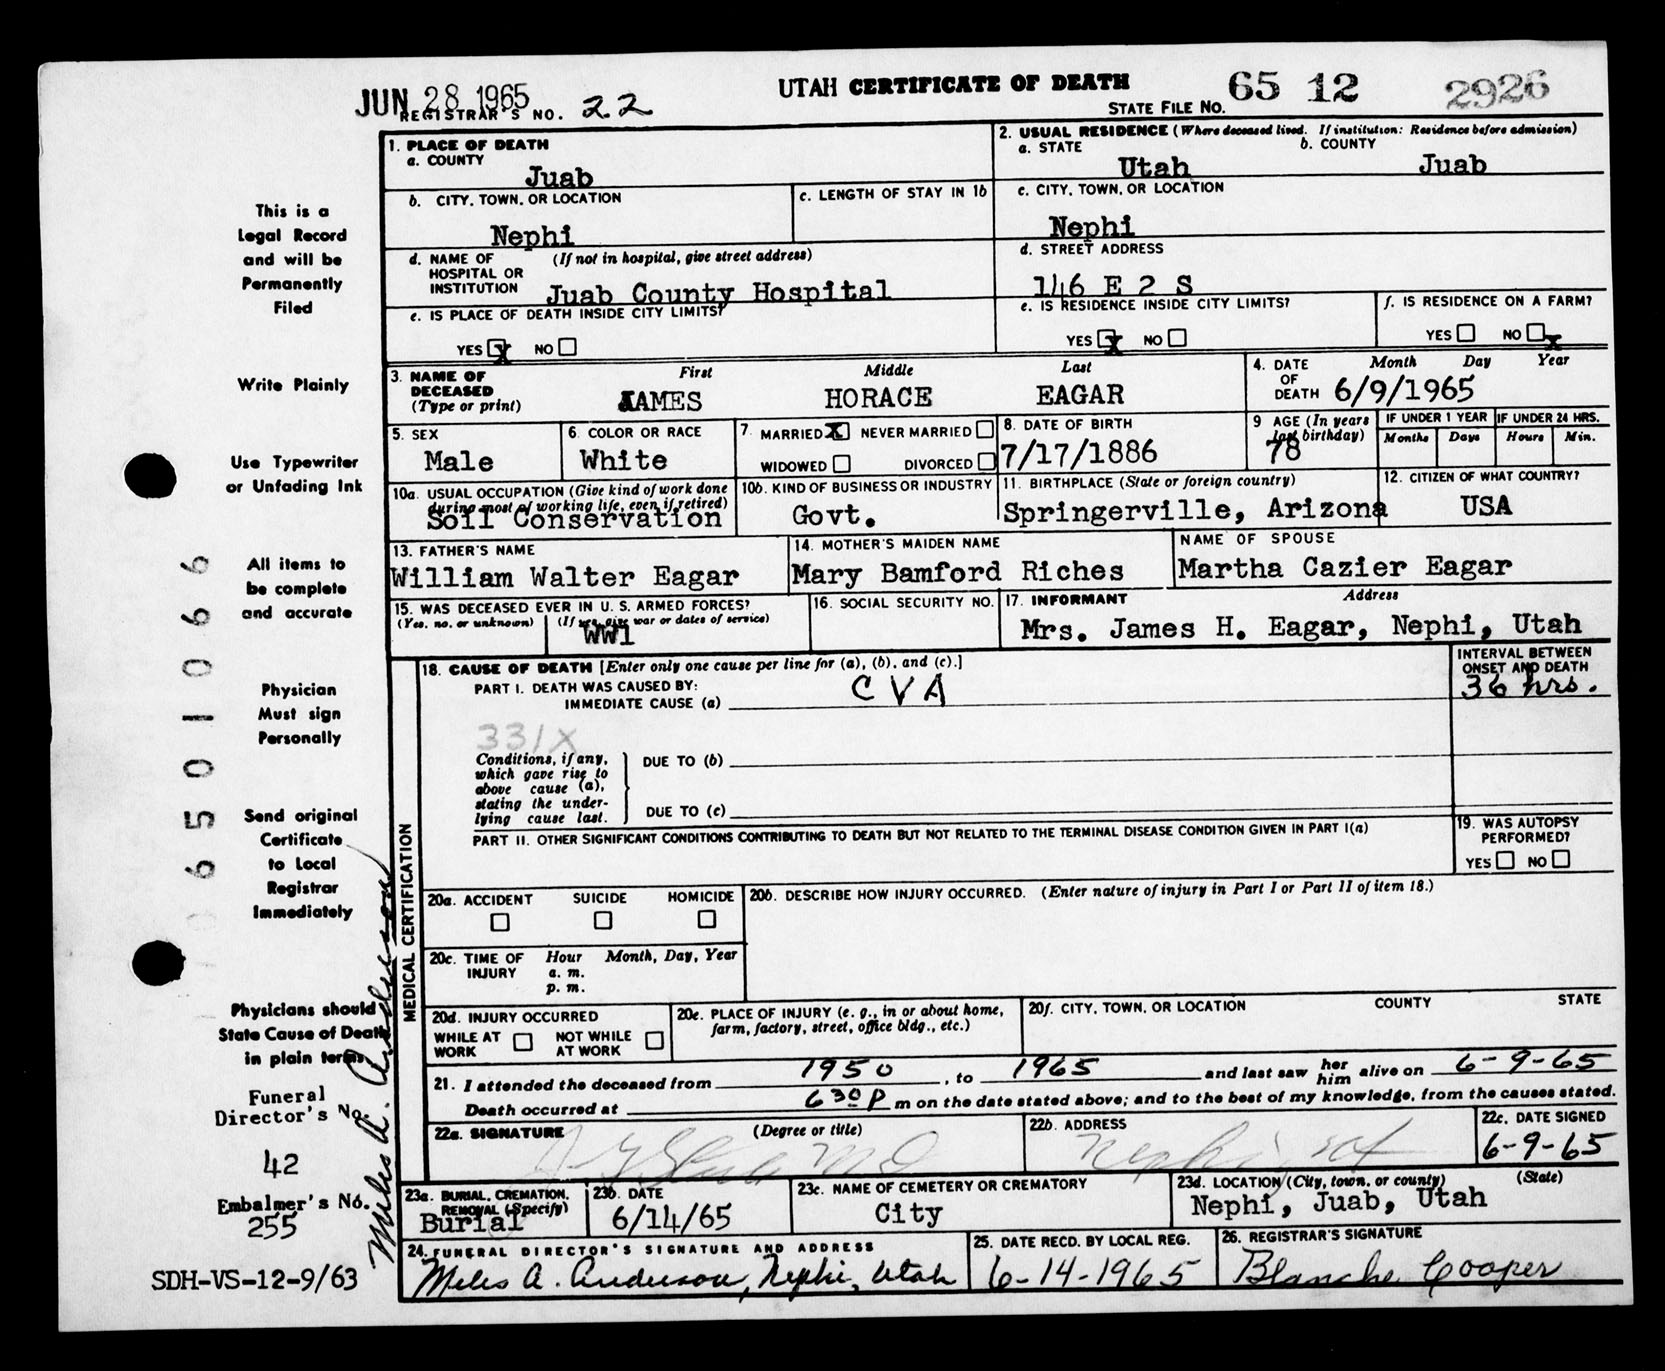 JUN 28 1965
UTAH CERTIFICATE OF DEATH 65 12 2926
REGISTRAR'S NO. 22
STATE FILE NO.
This is a
Legal Record
and will be
Permanently
Filed
Write Plainly
Use Typewriter
or Unfading Ink
All items to
be complete
and accurate
Physician
Must sign
Personally
Send original
Certificate
to Local
Registrar
Immediately
Physicians should
State Cause of Death
in plain terms
Funeral
Director's No.
42
Embalmer's No.
255
SDH-VS-12-9/63
6501066
Miles A. Anderson
1. PLACE OF DEATH
a. COUNTY
Juab
2. USUAL RESIDENCE (Where deceased lived. If institution: Residence before admission)
a. STATE b. COUNTY
Utah Juab
b. CITY, TOWN, OR LOCATION
Nephi
c. LENGTH OF STAY IN 1b
c. CITY, TOWN, OR LOCATION
Nephi
d. NAME OF (If not in hospital, give street address)
HOSPITAL OR
INSTITUTION Juab County Hospital
d. STREET ADDRESS
146 E 2 S
e. IS PLACE OF DEATH INSIDE CITY LIMITS?
YES X NO
e. IS RESIDENCE INSIDE CITY LIMITS?
YES X NO
f. IS RESIDENCE ON A FARM?
YES NO X
3. NAME OF First Middle Last
DECEASED
(Type or print) JAMES HORACE EAGAR
4. DATE Month Day Year
OF
DEATH 6/9/1965
5. SEX
Male
6. COLOR OR RACE
White
7. MARRIED X NEVER MARRIED
WIDOWED DIVORCED
8. DATE OF BIRTH
7/17/1886
9 AGE (In years
last birthday)
78
IF UNDER 1 YEAR
Months Days
IF UNDER 24 HRS.
Hours Min.
10a. USUAL OCCUPATION (Give kind of work done
during most of working life, even if retired)
Soil Conservation
10b. KIND OF BUSINESS OR INDUSTRY
Govt.
11. BIRTHPLACE (State or foreign country)
Springerville, Arizona
12. CITIZEN OF WHAT COUNTRY?
USA
13. FATHER'S NAME
William Walter Eagar
14. MOTHER'S MAIDEN NAME
Mary Bamford Riches
NAME OF SPOUSE
Martha Cazier Eagar
15. WAS DECEASED EVER IN U. S. ARMED FORCES?
(Yes, no, or unknown) (If yes, give war or dates of service)
WW1
16. SOCIAL SECURITY NO.
17. INFORMANT Address
Mrs. James H. Eagar, Nephi, Utah
MEDICAL CERTIFICATION
18. CAUSE OF DEATH [Enter only one cause per line for (a), (b), and (c).]
PART I. DEATH WAS CAUSED BY:
IMMEDIATE CAUSE (a) CVA
INTERVAL BETWEEN
ONSET AND DEATH
36 hrs.
331X
Conditions, if any,
which gave rise to
above cause (a),
stating the under-
lying cause last.
DUE TO (b)
DUE TO (c)
PART II. OTHER SIGNIFICANT CONDITIONS CONTRIBUTING TO DEATH BUT NOT RELATED TO THE TERMINAL DISEASE CONDITION GIVEN IN PART I(a)
19. WAS AUTOPSY
PERFORMED?
YES NO
20a. ACCIDENT SUICIDE HOMICIDE
20b. DESCRIBE HOW INJURY OCCURRED. (Enter nature of injury in Part I or Part II of item 18.)
20c. TIME OF Hour Month, Day, Year
INJURY a. m.
p. m.
20d. INJURY OCCURRED
WHILE AT NOT WHILE
WORK AT WORK
20e. PLACE OF INJURY (e. g., in or about home,
farm, factory, street, office bldg., etc.)
20f. CITY, TOWN, OR LOCATION COUNTY STATE
21. I attended the deceased from 1950, to 1965 and last saw her him alive on 6-9-65
Death occurred at 6 30 P m on the date stated above; and to the best of my knowledge, from the causes stated.
22a. SIGNATURE (Degree or title)
MD
22b. ADDRESS
Nephi, Ut
22c. DATE SIGNED
6-9-65
23a. BURIAL, CREMATION,
REMOVAL (Specify)
Burial
23b. DATE
6/14/65
23c. NAME OF CEMETERY OR CREMATORY
City
23d. LOCATION (City, town, or county) (State)
Nephi, Juab, Utah
24. FUNERAL DIRECTOR'S SIGNATURE AND ADDRESS
Miles A. Anderson, Nephi, Utah
25. DATE RECD. BY LOCAL REG.
6-14-1965
26. REGISTRAR'S SIGNATURE
Blanche Cooper